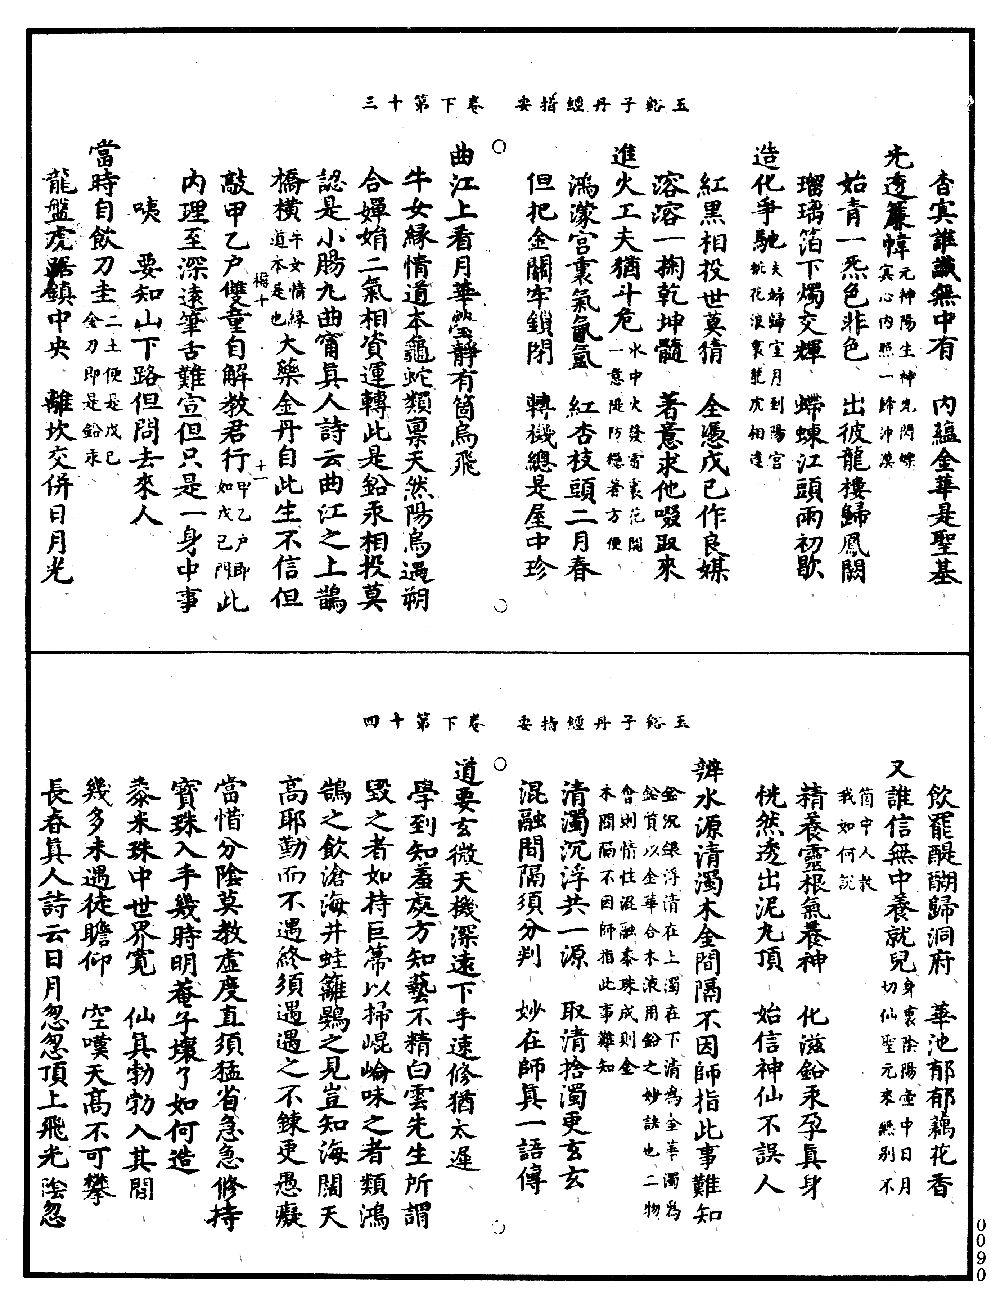 玉谿子丹經指要　卷下第十三
杳冥誰識無中有　內蘊金華是聖基
光透簾幃元神陽生神光閃爍冥心內照一歸沖漠
始青一炁色非色　出彼龍樓歸鳳闕
瑠璃箔下燭交輝　螮蝀江頭雨初歇
造化爭馳夫婦歸室月到陽宮桃花浪裏龍虎相逢
紅黑相投世莫猜　全憑戊己作良媒
溶溶一掬乾坤髓　著意求他啜取來
進火工夫猶斗危水中火發雪裏花開一意隄防穩著方便
鴻濛宮裏氣氤氳　紅杏枝頭二月春
但把金關牢鎖閉　轉機總是屋中珍
○
曲江上看月華瑩靜有箇烏飛
牛女緣情道本龜蛇類稟天然陽烏過朔
合嬋娟二氣相資運轉此是鉛汞相投莫
認是小腸九曲甯真人詩云曲江之上鵲
橋橫牛女情緣道本是也大藥金丹自此生不信但
敲甲乙戶雙童自解教君行甲乙戶即如戊己門此
內理至深遠筆舌難宣但只是一身中事
咦　要知山下路但問去來人
當時自飲刀圭二土便是戊己金刀即是鉛汞
龍盤虎踞鎮中央　離坎交併日月光
楊十
十一
玉谿子丹經指要　卷下第十四
飲罷醍醐歸洞府　華池郁郁藕花香
又誰信無中養就兒身裏陰陽壺中日月切仙聖元來無別不
箇中人教我如何說
精養靈根氣養神　化滋鉛汞孕真身
恍然透出泥丸頂　始信神仙不誤人
辨水源清濁木金間隔不因師指此事難知
金沉銀浮清在上濁在下清為金華濁為鉛質以金華合木液用鉛之妙訣也二物會則情性混融黍珠成則金木間隔不因師指此事難知
清濁沉浮共一源　取清捨濁更玄玄
混融間隔須分判　妙在師真一語傳
○
道要玄微天機深遠下手速修猶太遲
學到知羞處方知藝不精白雲先生所謂
毀之者如持巨箒以掃崐崙味之者類鴻
鵠之飲滄海井蛙籬鷃之見豈知海闊天
高耶勤而不遇終須遇遇之不鍊更愚癡
當惜分陰莫教虛度直須猛省急急修持
寶珠入手幾時明菴子壞了如何造
黍米珠中世界寬　仙真勃勃入其間
幾多未遇徒瞻仰　空嘆天高不可攀
長春真人詩云日月忽忽頂上飛光陰忽
0090